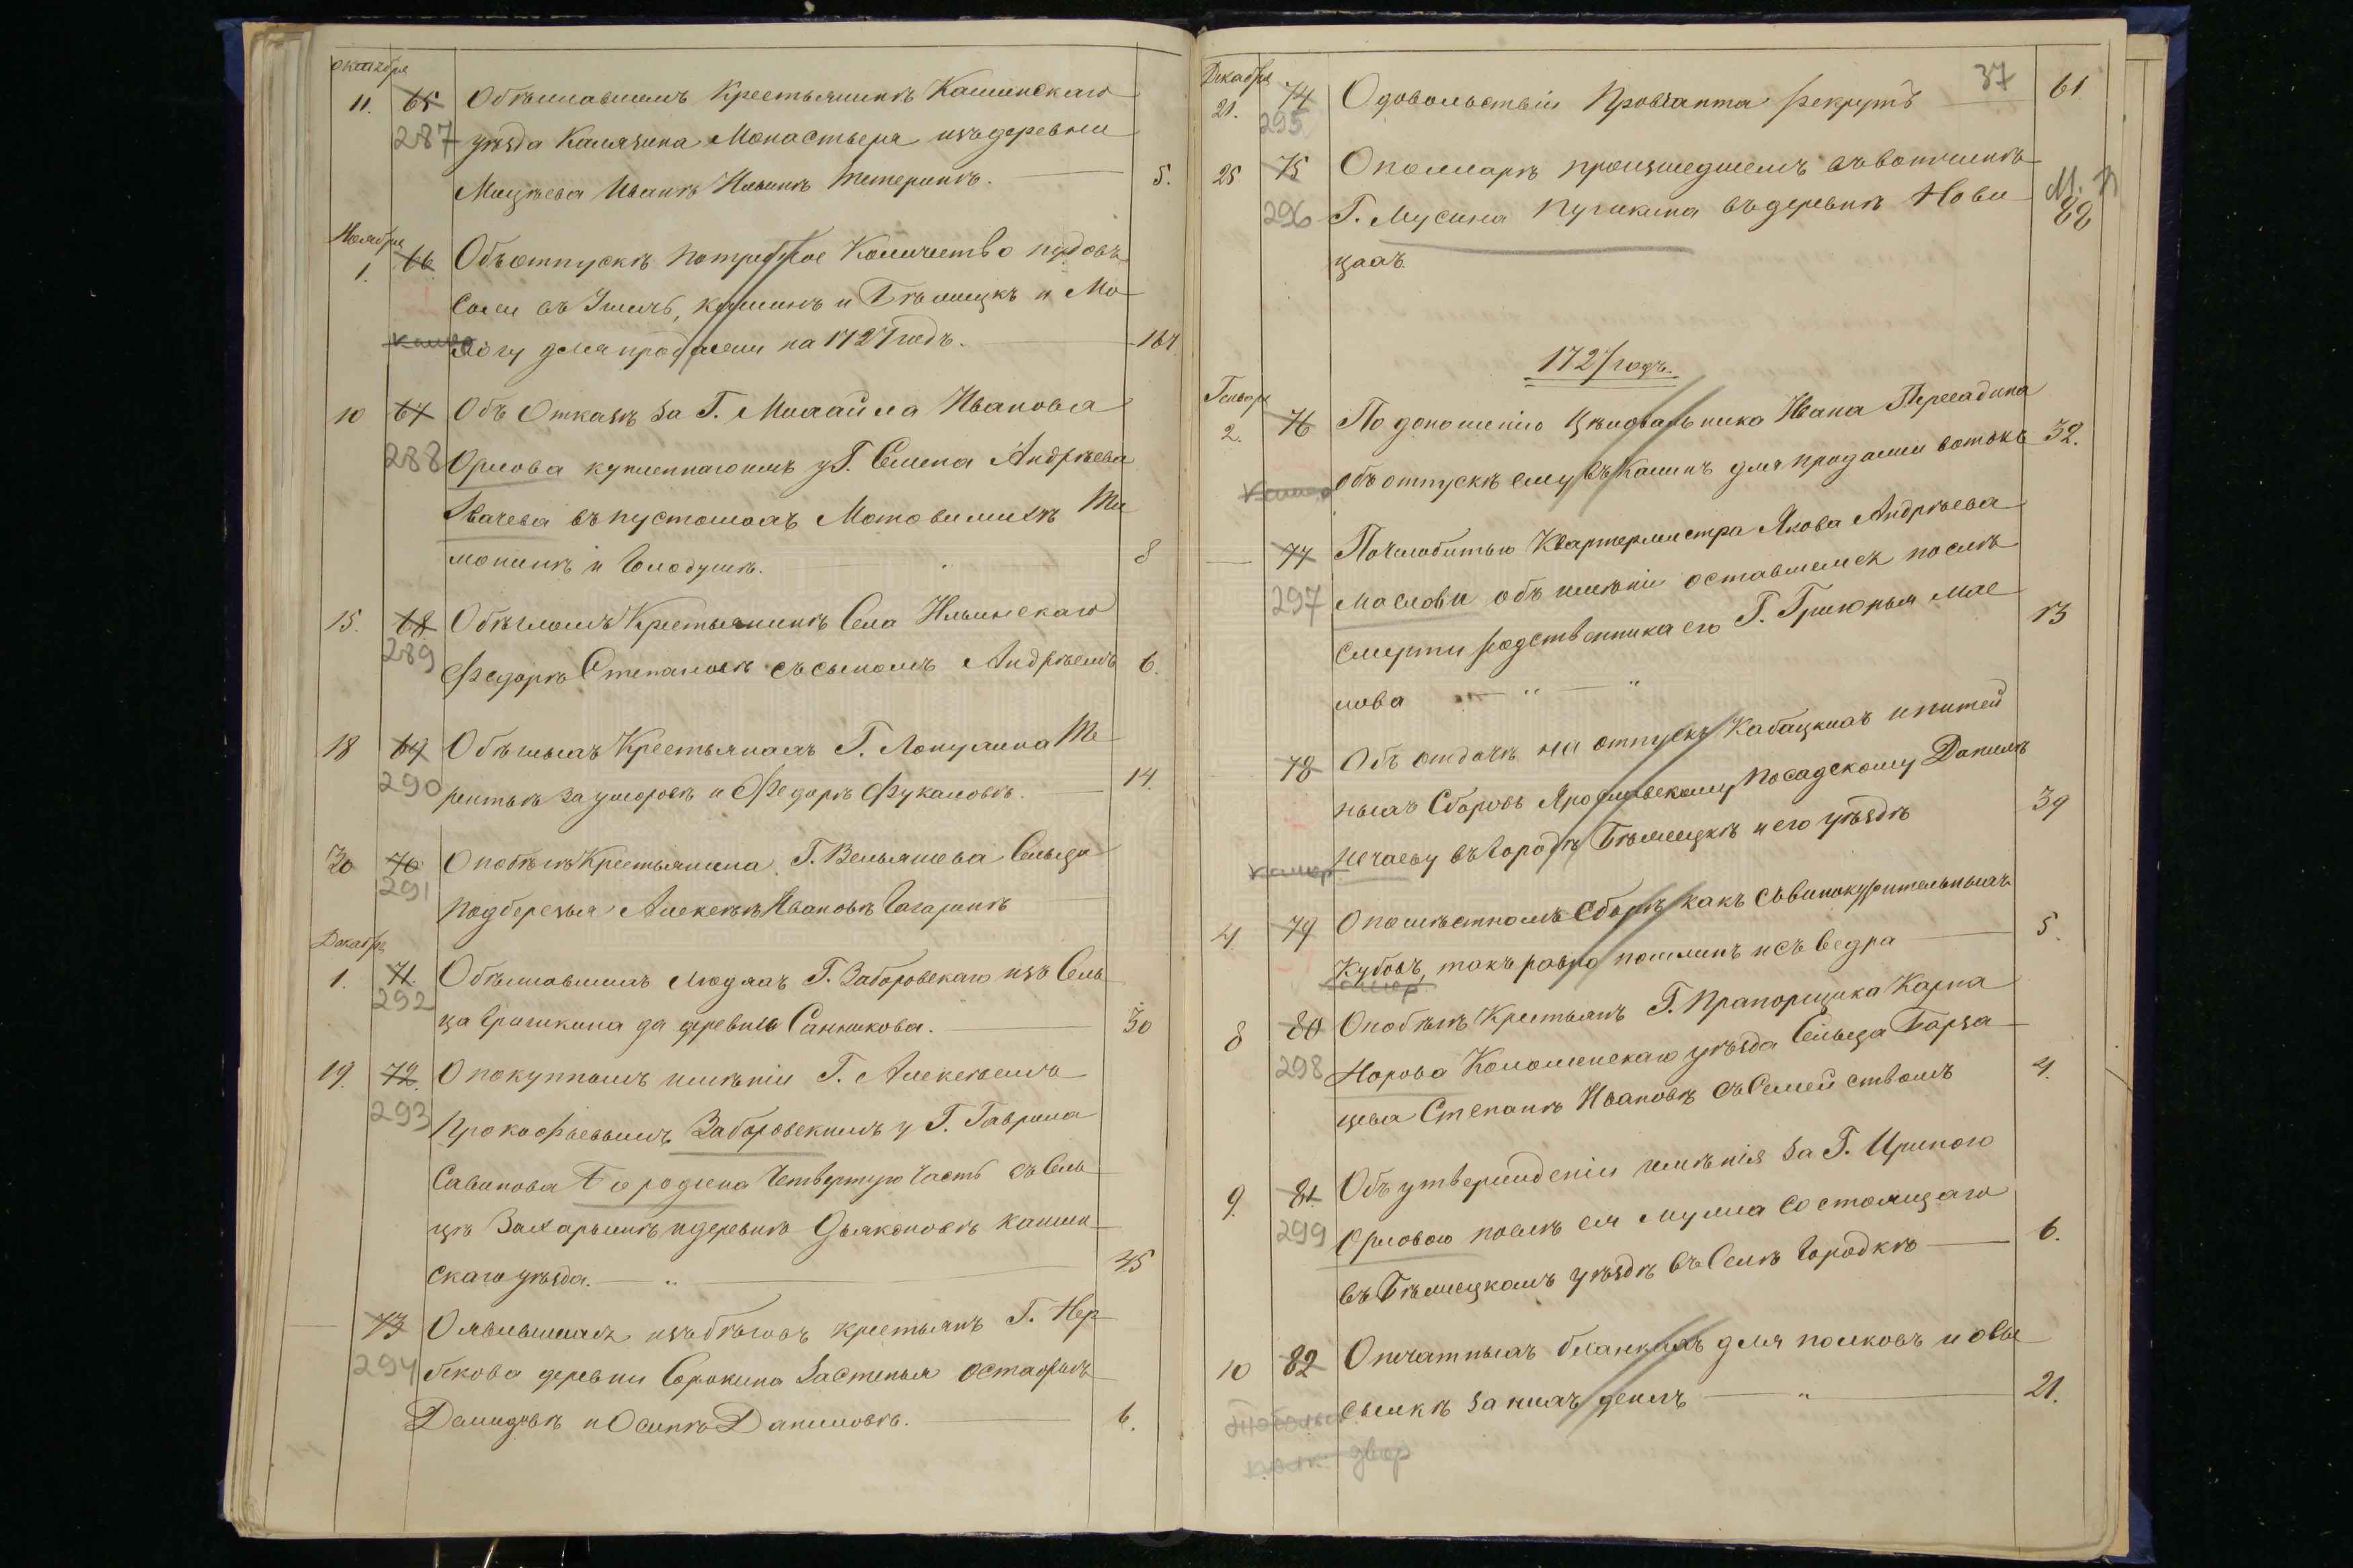 Октября
11. 65 Объжававшемъ Крестьянинѣ Кашинскаго
287 уѣзда Калязина Монастыря изъ деревни
Мицѣева Иванѣ Ильинѣ Тетеринѣ. 5.
Ноября
1. 66 Объ отпускѣ потребное Количество пудовъ
Соли въ Угличъ, Кашинъ и Бѣжицкъ и Мо
логу для продажи на 1727 годъ. 164
10 67 Объ Отказѣ за Г. Михайла Иванова
288 Орлова купленнаго имъ у Г. Семена Андрѣева
въ пустошахъ Мотовилихѣ Ти
монинѣ и Голодушѣ. 8
15. 68 О бѣгломъ Крестьянинѣ Села Ильинскаго
289 Федорѣ Степановѣ съ сыномъ Андрѣемъ 6.
18 69 О бѣглыхъ Крестьянахъ Г. Лопухина Те
290 рентьѣ и Федорѣ Фукаловѣ. 14.
30 70 О побѣгѣ Крестьянина Г. Вельяшева Сельца
291 Подберезья Алексѣѣ Ивановѣ Гагаринѣ
Декабря
1. 71. О бѣжавшихъ людяхъ Г. Заборовскаго изъ Сель
292 ца Гришкина да деревни Санникова. 30
19. 72. О покупномъ имѣніи Г. Алексѣемъ
293 Прокофьевымъ Заборовскимъ у Г. Гаврила
Савинова Бородина Четвертую Часть въ Сель
цѣ Захарьинѣ и деревнѣ Дьяконовѣ Кашин
скаго уѣзда. 45
73 О явившихся изъ бѣговъ крестьянъ Г. Нер
294 бекова деревни Сорокина Застенья Остафьѣ
Демидовѣ и Осипѣ Даниловѣ. 6.
Декабря 37
21. 74 О довольствіи Провіанта рекрутъ 61
295
25 75 О пожарѣ произшедшемъ въ вотчинѣ
296 Г. Мусина Пушкина въ деревнѣ Нови
цахъ
1727 годъ.
Генваря
2. 76 По доношенію Цѣловальника Ивана
объ отпускѣ ему въ Кашинъ для продажи вотокъ 32.
77 По челобитью Квартермистра Якова Андрѣева
297 Маслова объ имѣніи оставшемся послѣ
смерти родственника его Г. Григорья Мас
лова 13
78 Объ отдачѣ на отпускъ Кабацкихъ и питей
ныхъ Сборовъ Ярославскому Посадскому Данилѣ
Нечаеву въ городѣ Бѣжицкѣ и его уѣздѣ 39
4. 79 О помѣстномъ Сборѣ какъ съ винокурительныхъ
Кубовъ, такъ равно пошлинъ и съ ведра 5.
8 80 О побѣгѣ Крестьянъ Г. Прапорщика Карпа
298 Норова Коломенскаго уѣзда Сельца Барза
цева Степанѣ Ивановѣ съ Семействомъ 4.
9. 81. Объ утвержденіи имѣнія за Г. Ириною
299 Орловою послѣ ея мужа состоящаго
въ Бѣжецкомъ уѣздѣ въ Селѣ Городкѣ 6.
10 82 О печатныхъ бланкахъ для полковъ и о вы
сылкѣ за нихъ денегъ 21.
двор